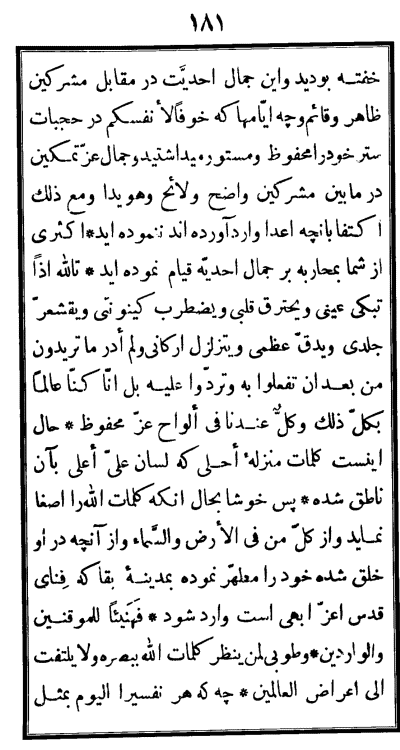 ١٨١
خفتــه بوديد واين جمال احديَّت در مقابل مشركين
ظاهر وقائم وچه ايّامها كه خوفاً لأنفسكم در حجبات
ستر خودرا محفوظ ومستور ميداشتيد وجمال عزّ تمكين
در مابين مشركين واضح ولائح وهويدا ومع ذلك
اكتفا بانچه اعدا وارد آورده اند ننموده ايد * اكثرى
از شما بمحاربه بر جمال احديّه قيام نموده ايد * تالله اذًا
تبكى عينى ويحترق قلبى ويضطرب كينونتى ويقشعرّ
جلدى ويدقّ عظمى ويتزلزل اركانى ولم أدر ما تريدون
من بعد ان تفعلوا به وتردّوا عليه بل انّا كنّا عالمًا
بكلّ ذلك وكلٌّ عنــدنا فى ألواح عزّ محفوظ * حال
اينست كلمات منزلهٔ أحلى كه لسان علىّ أعلى بآن
ناطق شده * پس خوشا بحال انكه كلمات الله را اصغا
نمــايد واز كلّ من فى الأرض والسَّماء واز آنچه در او
خلق شده خود را مطهّر نموده بمدينــهٔ بقا كه فِناى
قدس اعزّ ابهى است وارد شود * فهَنيئًا للموقنــين
والواردين * وطوبى لمن ينظر كلمات الله ببصره ولا يلتفت
الى اعراض العالمين * چه كه هر نفسيرا اليوم بمثــل